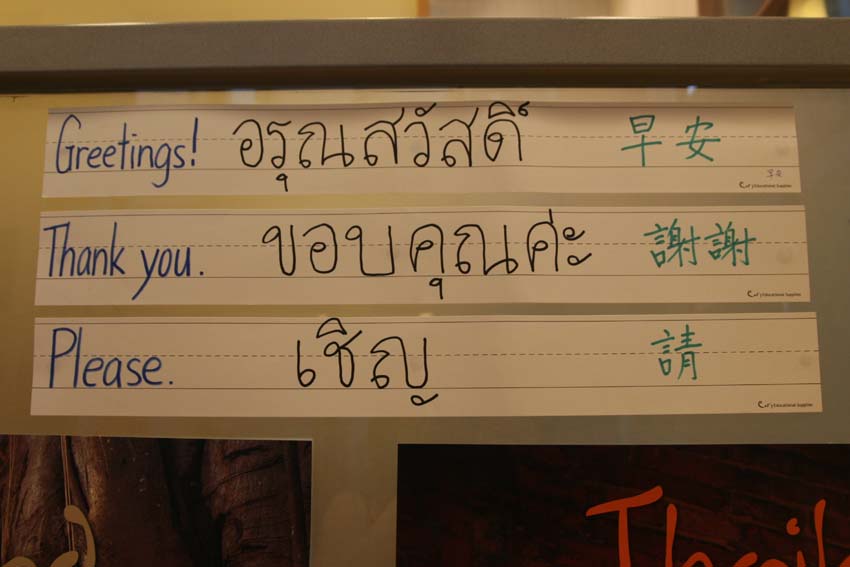 Greetings! อรุณสวัสดิ์ 早安
Thank you. ขอบคุณค่ะ 謝謝
Please. เชิญ 請